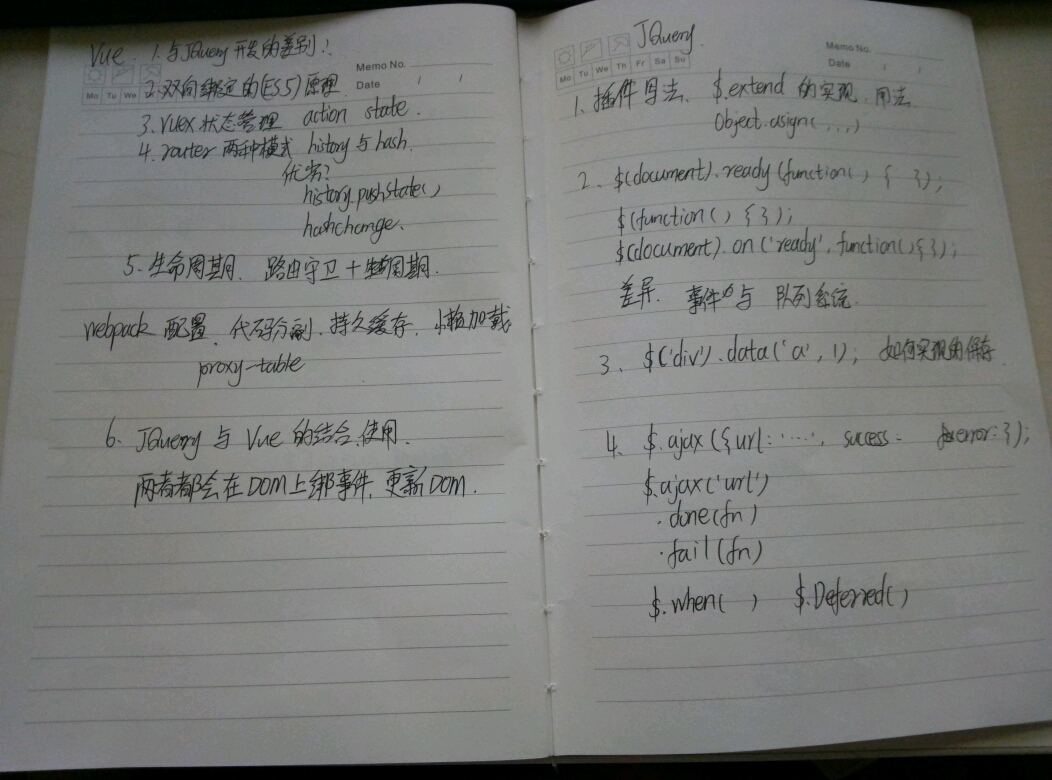 Vue 1.与JQuery开发的差别?
Memo No.
Mo Tu We
Date / /
2.双向绑定的(ES5)原理
3.vuex状态管理 action state.
4.router两种模式 history与hash.
优劣?
history.pushstate()
hashchange.
5.生命周期、路由守卫+生命周期.
webpack 配置、代码分割、持久缓存、懒加载
proxy-table
6、JQuery 与 Vue 的结合使用.
两者都会在DOM上绑事件、更新DOM.
JQuery
Memo No.
Mo Tu We Th Fr Sa Su
Date / /
1、插件写法、$.extend 的实现、用法
Object.asign(,,,)
2、$(document).ready(function() { });
$(function() {});
$(document).on('ready', function(){});
差异、事件 与 队列系统.
3、$('div').data('a', 1); 如何实现的保存.
4. $.ajax({url: '....', sucess: error: });
$.ajax('url')
.done(fn)
.fail(fn)
$.when( ) $.Deferred()